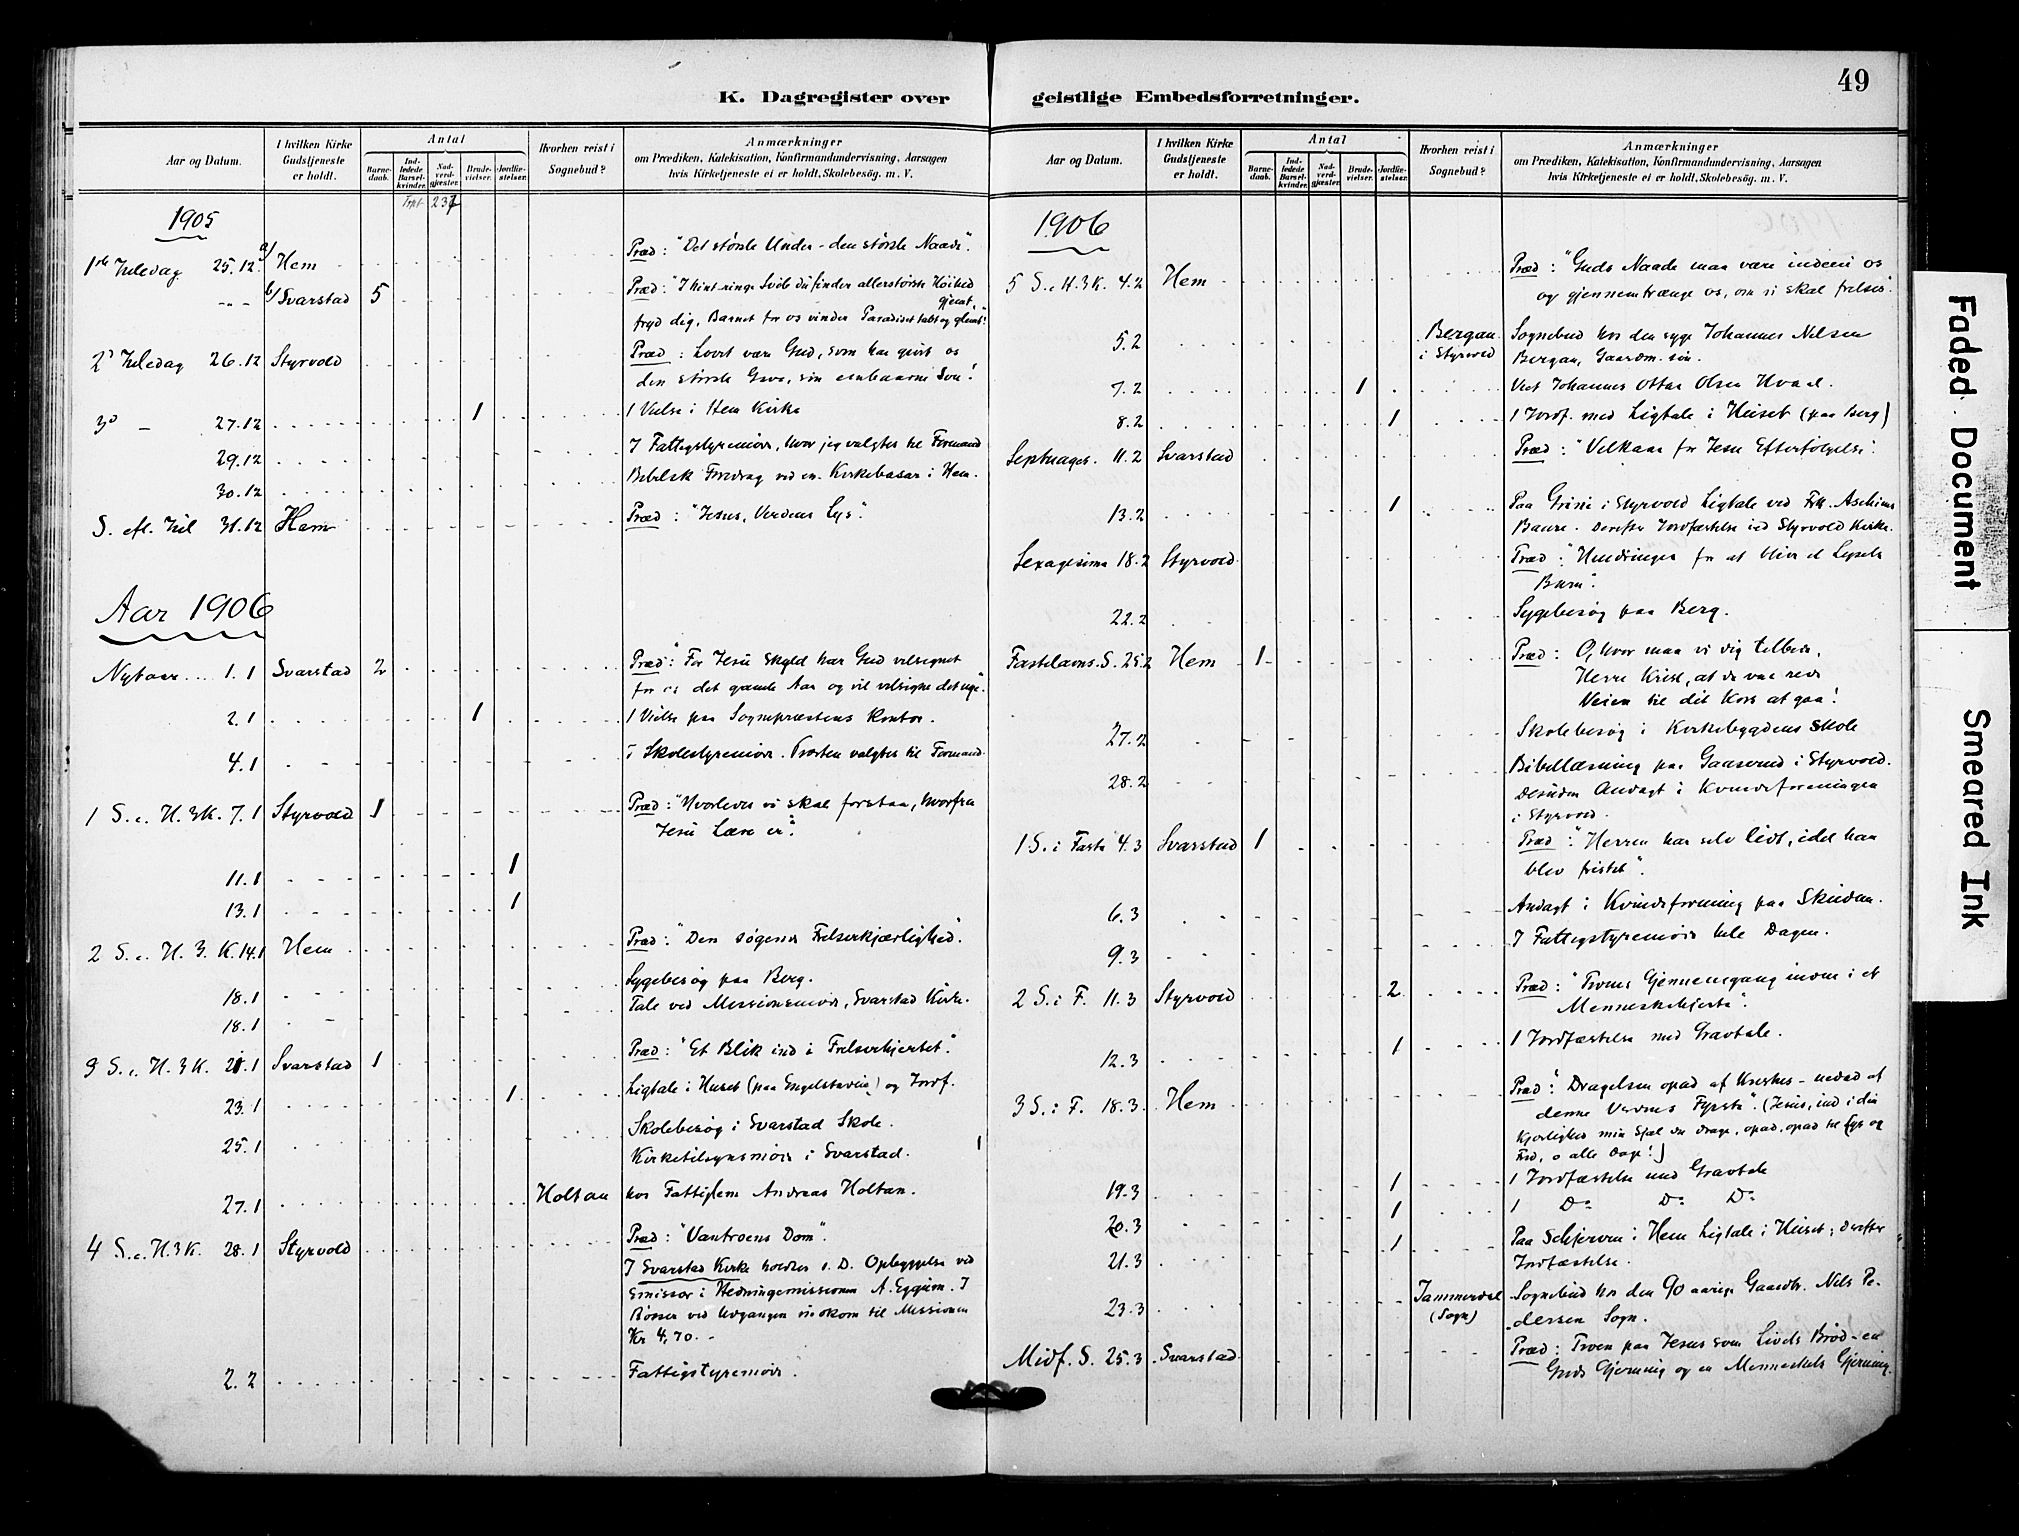 K. Dagregister over
Aar og Datum.
I hvilken Kirke
Gudstjeneste
er holdt.
Antal
Barne-
daab.
Ind-
ledede
Barsel-
kvinder.
Nad-
verd-
gjæster.
Brude-
vielser.
Jordfæ-
stelser.
Hvorhen reist i
Sognebud?
Anmærkninger
om Prædiken, Katekisation, Konfirmandundervisning, Aarsagen
hvis Kirketjeneste ei er holdt, Skolebesög. m. V.
1905
1ste Juledag 25.12 a/ Hem Præd: "Det største Under - den største Naade".
b/ Svarstad 5 Præd: "I hint ringe Svøb du finder allerstørste Høihed gjemt,
fryd dig, Barnet for os vinder Paradiset tabt og glemt."
2' Juledag 26.12 Styrvold Præd: Lovet være Gud, som har givet os
den største Gave, sin enbaarne Søn!
3' - 27.12 1 1 Vielse i Hem Kirke
29.12 I Fattigstyremøde, hvor jeg valgtes til Formand
30.12 Bibelsk Foredrag ved en Kirkebasar i Hem.
S. eft. Jul 31.12 Hem Præd: "Jesus, Verdens Lys".
Aar 1906
Nytaar 1.1 Svarstad 2 Præd: "For Jesu Skyld har Gud velsignet
for os det gamle Aar og vil velsigne det nye".
2.1 1 1 Vielse paa Sognepræstens Kontor.
4.1 I Skolestyremøde. Præsten valgtes til Formand.
1 S. e. H. 3 K. 7.1 Styrvold 1 Præd: "Hvorledes vi skal forstaa, hvorfra
Jesu Lære er".
11.1 1
13.1 1
2 S. e. H. 3. K. 14.1 Hem Præd: "Den søgende Frelserkjærlighed".
18.1 Sygebesøg paa Berg.
18.1 Tale ved Missionsmøde, Svarstad Kirke.
3 S. e. H. 3 K. 21.1 Svarstad 1 Præd: "Et Blik ind i Frelserhjertet".
23.1 1 Ligtale i Huset (paa ) og Jordf.
25.1 Skolebesøg i Svarstad Skole.
Kirketilsynsmøde i Svarstad.
27.1 Holtan hos Fattiglem Andreas Holtan.
4 S. e. H. 3 K. 28.1 Styrvold Præd: "Vantroens Dom".
I Svarstad Kirke holdtes s. D. Opbyggelse ved
Emissær i Hedningemissionen A. Eggum. I
Bøsser ved Udgangen indkom til Missionen
Kr 4,70. -
2.2 Fattigstyremøde.
geistlige Embedsforretninger.
49
Aar og Datum.
I hvilken Kirke
Gudstjeneste
er holdt.
Antal
Barne-
daab.
Ind-
ledede
Barsel-
kvinder.
Nad-
verd-
gjæster.
Brude-
vielser.
Jordfæ-
stelser.
Hvorhen reist i
Sognebud?
Anmærkninger
om Prædiken, Katekisation, Konfirmandundervisning, Aarsagen
hvis Kirketjeneste ei er holdt, Skolebesög. m. V.
1906
5 S. e. H. 3 K. 4.2 Hem Præd: "Guds Naade maa være inden i os
og gjennemtrænge os, om vi skal frelses".
5.2 Bergan i Styrvold Sognebud hos den syge Johannes Nilsen
Bergan, Gaardm. søn.
7.2 1 Viet Johannes Ottar Olsen Hvaal.
8.2 1 1 Jordf. med Ligtale i Huset (paa Berg)
Septuages. 11.2 Svarstad Præd: "Velkaar for Jesu Efterfølgelse".
13.2 1 Paa i Styrvold Ligtale ved Frk.
. Derefter Jordfæstelse ved Styrvold Kirke.
Sexagesima 18.2 Styrvold Præd: "Hindringer for at blive et Lysets
Barn".
22.2 Sygebesøg paa Berg.
Fastelavns. S. 25.2 Hem 1 Præd: O, hvor maa vi dig tilbede,
Herre Krist, at du var rede
Veien til dit Kors at gaa!
27.2 Skolebesøg i Kirkebygdens Skole
28.2 Bibellæsning paa Gaaserud i Styrvold.
Desuden Andagt i Kvindeforeningen
i Styrvold.
1 S. i Faste 4.3 Svarstad 1 Præd: "Herren har selv lidt, idet han
blev fristet".
6.3 Andagt i Kvindeforening paa Skindan.
9.3 I Fattigstyremøde hele Dagen.
2 S. i F. 11.3 Styrvold 2 Præd: "Troens Gjennemgang inden i et
Menneskehjerte".
12.3 1 1 Jordfæstelse med Gravtale.
3 S. i F. 18.3 Hem Præd: "Dragelsen opad af Kristus - nedad af
denne Verdens Fyrste". (Jesus, ind i din
Kjærlighed min Sjæl du drage, opad, opad til Lys og
Fred, o alle Dage!)
19.3 1 1 Jordfæstelse med Gravtale
20.3 1 1 Do Do Do
21.3 1 Paa Schjerven i Hem Ligtale i Huset; derefter
Jordfæstelse.
23.3 Tammerdal (Sogn) Sognebud hos den 90 aarige Gaardbr. Nils Pe-
dersen Sogn.
Midf. S. 25.3 Svarstad Præd: Troen paa Jesus som Livets Brød - en
Guds Gjerning og en Menneskets Gjerning.
Faded Document
Smeared Ink